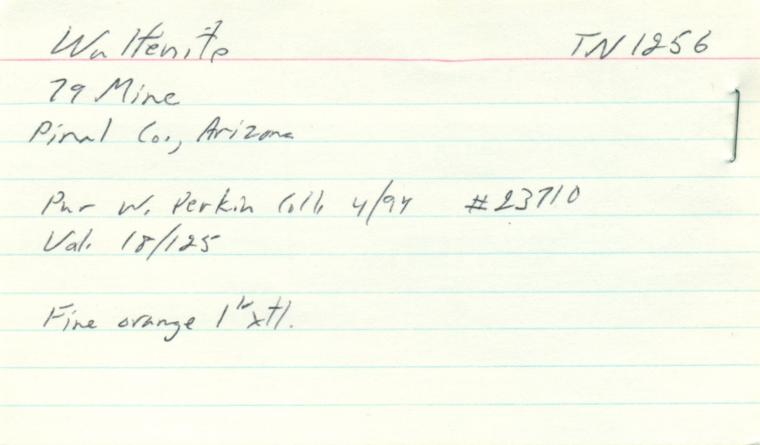 Wulfenite TN1256
79 Mine
Pinal Co., Arizona
Pur W. Perkin Coll. 4/94 #23710
Val. 18/125
Fine orange 1" xtl.